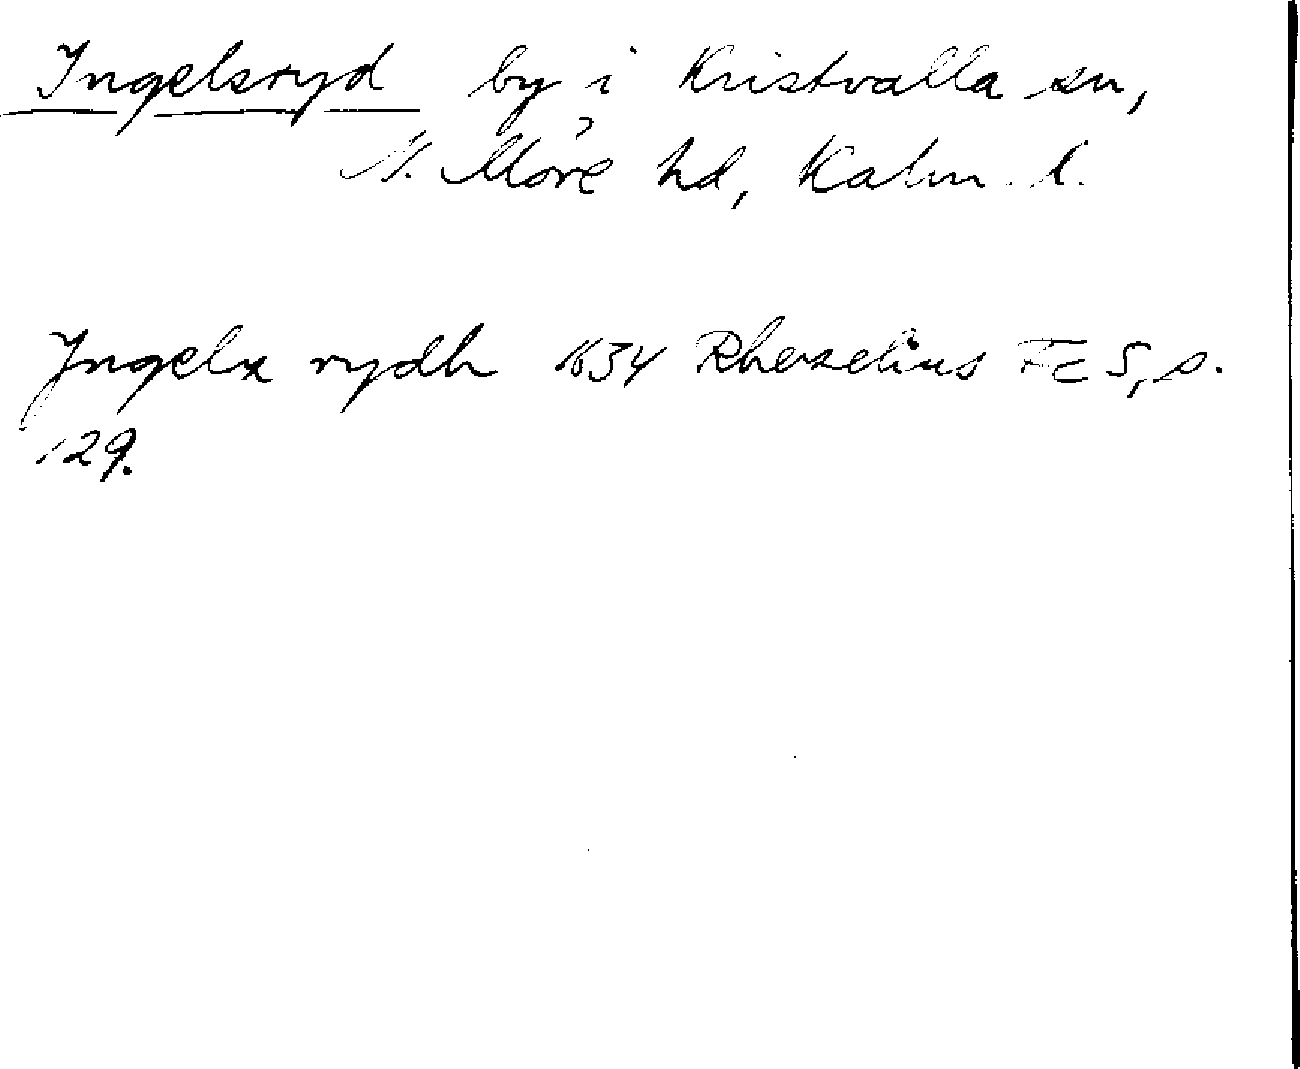 Ingelsryd by i Kristvalla sn,
N. Möre hd, Kalm. l.
Jngelx rydh 1634 Rhezelius Fc 5, s.
129.